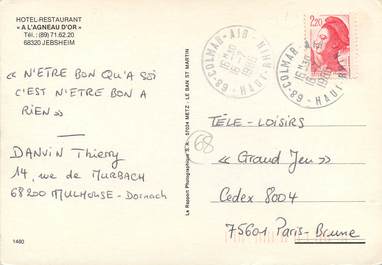 HOTEL-RESTAURANT
« A L'AGNEAU D'OR »
Tél. : (89) 71.62.20
68320 JEBSHEIM
« N'ETRE BON QU'A SOI
C'EST N'ETRE BON A
RIEN »
DANVIN Thierry
14, rue de MURBACH
68200 MULHOUSE - Dornach
1460
Le Rapport Photographique S.A. - 57034 METZ - LE BAN ST MARTIN
68-COLMAR-A18-HAUT-RHIN
68-COLMAR
HAUT-RH
2,20
68
TÉLÉ-LOISIRS
« Grand Jeu »
Cedex 8004
75601 Paris-Brune